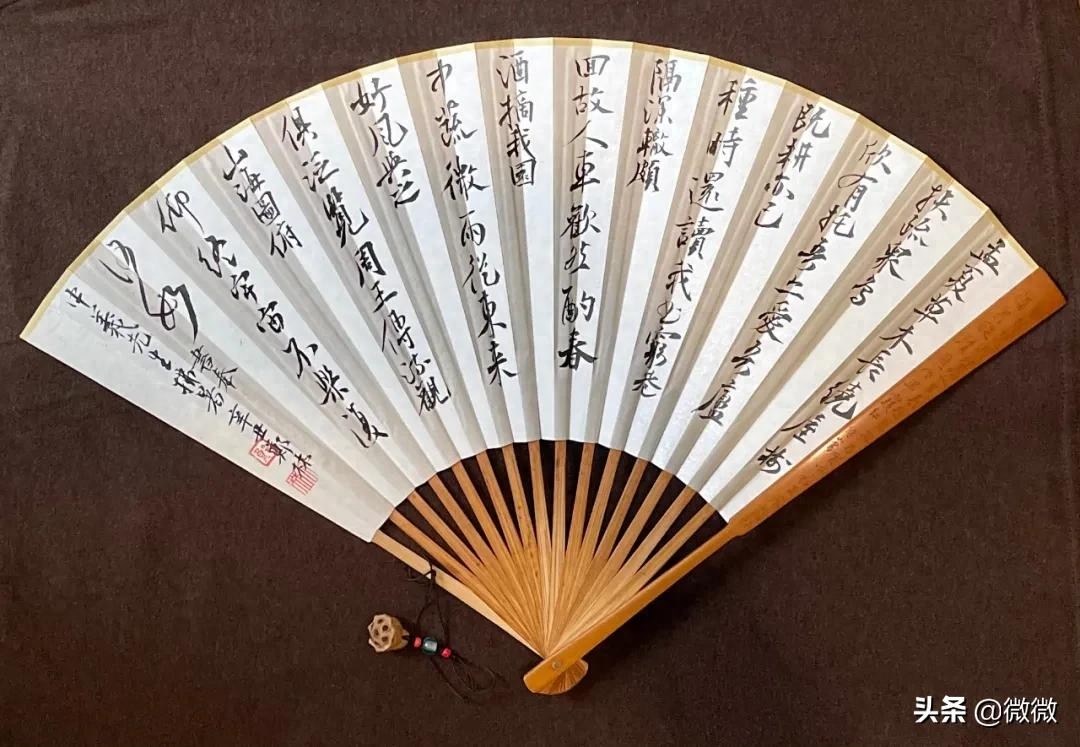 孟夏草木長繞屋樹
扶疏衆鳥
欣有托吾亦愛吾廬
既耕亦已
種時還讀我书窮巷
隔深轍頗
回故人車歡然酌春
酒摘我園
中蔬微雨從東来
好風與之
俱泛覽周王傳流觀
山海圖俯
仰終宇宙不樂復
何如 書奉
中義先生拂暑 辛丑 鄭林
头条 @微微